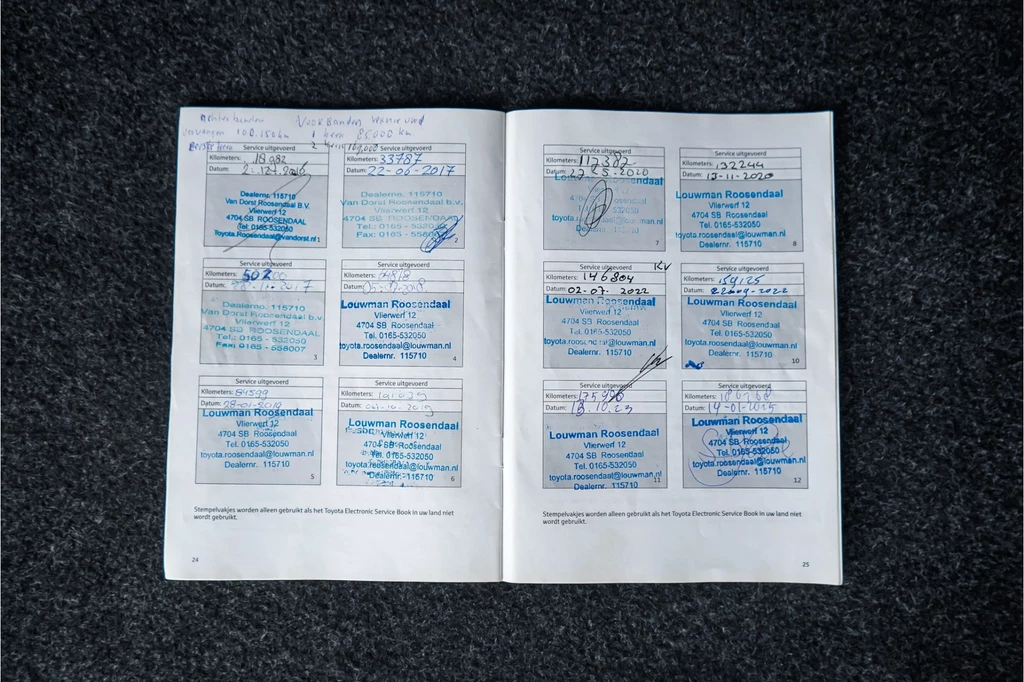 Voorbanden vernieuwd
vervangen 100.150 km 1 keer 85000 km
2 keer
Service uitgevoerd
Kilometers: 18982
Datum: 2.12.2016
Dealernr. 115710
Van Dorst Roosendaal B.V.
Vlierwerf 12
4704 SB ROOSENDAAL
Tel: 0165-532050
Toyota.Roosendaal@vandorst.nl
1
Service uitgevoerd
Kilometers: 33787
Datum: 22-06-2017
Dealernr. 115710
Van Dorst Roosendaal B.V.
Vlierwerf 12
4704 SB ROOSENDAAL
Tel.: 0165 - 532050
Fax: 0165 -
2
Service uitgevoerd
Kilometers:
Datum:
Dealernr. 115710
Van Dorst Roosendaal b.v.
Vlierwerf 12
4704 SB ROOSENDAAL
Tel.: 0165 - 532050
Fax: 0165 - 558007
3
Service uitgevoerd
Kilometers:
Datum:
Louwman Roosendaal
Vlierwerf 12
4704 SB Roosendaal
Tel. 0165-532050
toyota.roosendaal@louwman.nl
Dealernr. 115710
4
Service uitgevoerd
Kilometers: 84599
Datum: 28-01-2019
Louwman Roosendaal
Vlierwerf 12
4704 SB Roosendaal
Tel. 0165-532050
toyota.roosendaal@louwman.nl
Dealernr. 115710
5
Service uitgevoerd
Kilometers:
Datum:
Vlierwerf 12
4704 SB Roosendaal
Tel. 0165-532050
toyota.roosendaal@louwman.nl
Dealernr. 115710
6
Stempelvakjes worden alleen gebruikt als het Toyota Electronic Service Book in uw land niet
wordt gebruikt.
24
Service uitgevoerd
Kilometers: 117387
Datum: 27-5-2020
Louwman Roosendaal
7
Service uitgevoerd
Kilometers: 132244
Datum: 13-11-2020
Louwman Roosendaal
Vlierwerf 12
4704 SB Roosendaal
Tel. 0165-532050
toyota.roosendaal@louwman.nl
Dealernr. 115710
8
Service uitgevoerd
Kilometers: 146804
Datum: 02-07-2022
Louwman Roosendaal
Vlierwerf 12
4704 SB Roosendaal
Tel. 0165-532050
toyota.roosendaal@louwman.nl
Dealernr. 115710
Service uitgevoerd
Kilometers: 159125
Datum: 22-09-2022
Louwman Roosendaal
Vlierwerf 12
4704 SB Roosendaal
Tel. 0165-532050
toyota.roosendaal@louwman.nl
Dealernr. 115710
10
Service uitgevoerd
Kilometers: 175996
Datum: 13.10.23
Louwman Roosendaal
Vlierwerf 12
4704 SB Roosendaal
Tel. 0165-532050
toyota.roosendaal@louwman.nl
Dealernr. 115710
11
Service uitgevoerd
Kilometers:
Datum: 14-01-2025
Louwman Roosendaal
Vlierwerf 12
4704 SB Roosendaal
Tel. 0165-532050
toyota.roosendaal@louwman.nl
Dealernr. 115710
12
Stempelvakjes worden alleen gebruikt als het Toyota Electronic Service Book in uw land niet
wordt gebruikt.
25